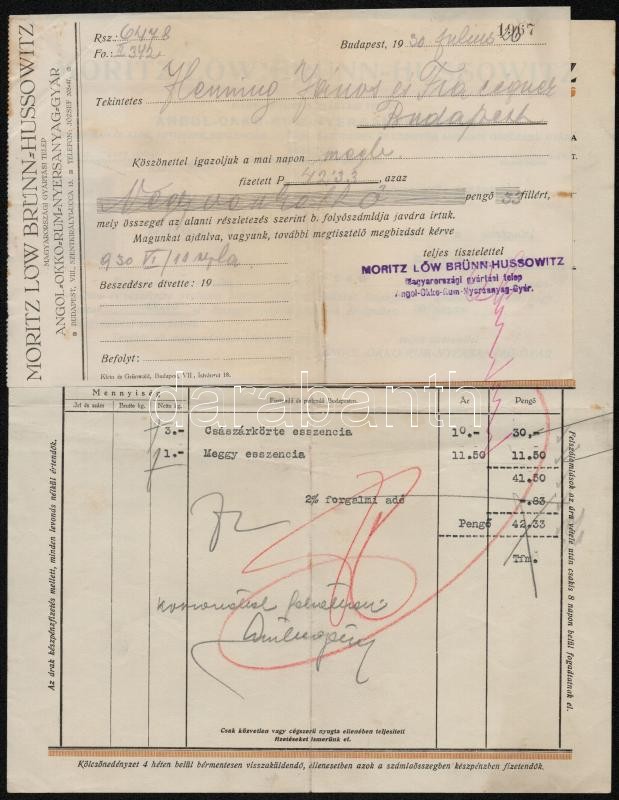 MORITZ LÖW BRÜNN-HUSSOWITZ
MAGYARORSZÁGI GYÁRTÁSI TELEP
ANGOL-OKKO-RUM-NYERSANYAG-GYÁR
BUDAPEST, VIII., SZENTKIRÁLYI-UCCA
TELEFON: JÓZSEF
Rsz.: 6478
Fo.: II 342
1967
Budapest, 1930 julius 26
Tekintetes Hennig János és Fia
Budapest
Köszönettel igazoljuk a mai napon
fizetett P 42.33, azaz
Negyvenkettő pengő 33 fillért,
mely összeget az alanti részletezés szerint b. folyószámlája javára irtuk.
Magunkat ajánlva, vagyunk, további megtisztelő megbizását kérve
teljes tisztelettel
930 VI/10
MORITZ LÖW BRÜNN-HUSSOWITZ
Magyarországi gyártási telep
Angol-Okko-Rum-Nyersanyag-Gyár.
Beszedésre átvette: 19
Befolyt:
Klein és Grünwald, Budapest, VII., István-ut 18.
darabanth
Mennyiség
Jel és szám
Brutto kg.
Netto kg.
Fizetendő és perlendő Budapesten.
Ár
Pengő
3.- Császárkörte esszencia 10.- 30,-
1.- Meggy esszencia 11.50 11.50
41.50
2% forgalmi adó -.83
Pengő 42.33
Tfm.
Az árak készpénzfizetés mellett, minden levonás nélkül értendők.
Felszólamlások az áru vétele után csakis 8 napon belül fogadtatnak el.
Csak közvetlen vagy cégszerű nyugta ellenében teljesített
fizetéseket ismerünk el.
Kölcsönedényzet 4 héten belül bérmentesen visszaküldendő, ellenesetben azok a számlaösszegben készpénzben fizetendők.